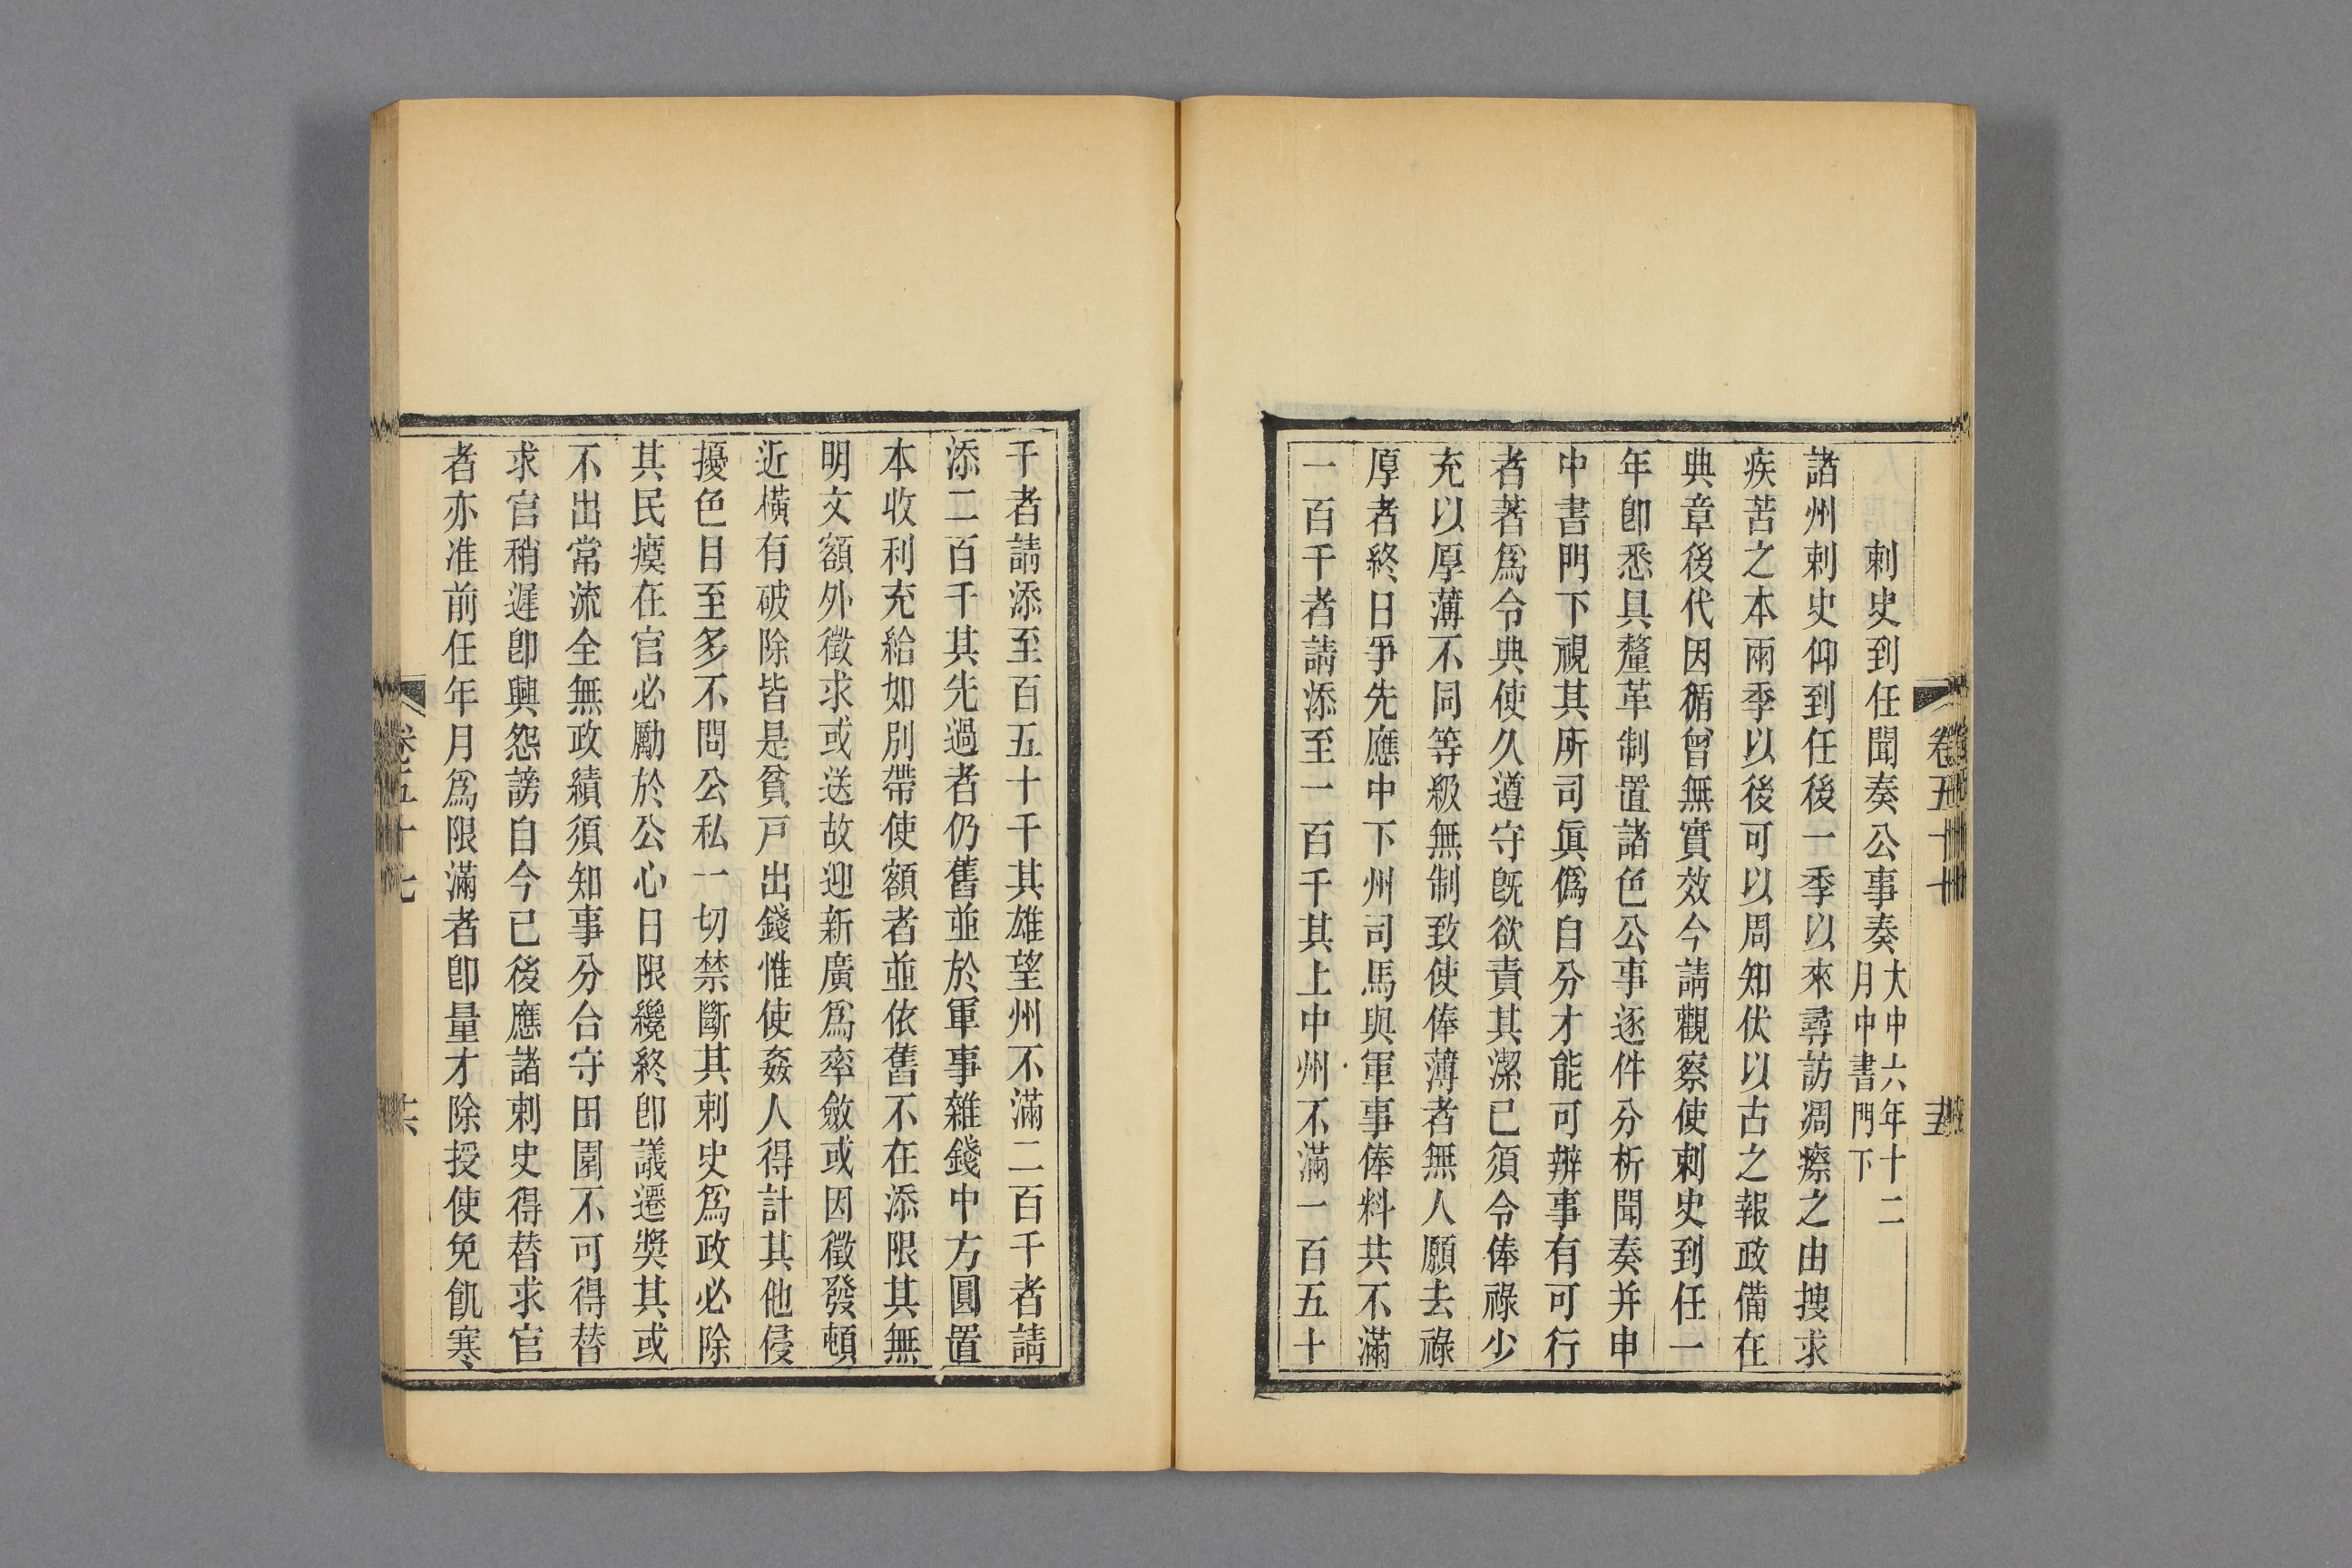 刺史到任聞奏公事奏大中六年十二
月中書門下
諸州刺史仰到任後一季以來尋訪凋瘵之由搜求
疾苦之本兩季以後可以周知伏以古之報政備在
典章後代因循曾無實效今請觀察使刺史到任一
年卽悉具釐革制置諸色公事逐件分析聞奏并申
中書門下視其所司眞僞自分才能可辨事有可行
者著爲令典使久遵守旣欲責其潔已須令俸祿少
充以厚薄不同等級無制致使俸薄者無人願去祿
厚者終日爭先應中下州司馬與軍事俸料共不滿
一百千者請添至一百千其上中州不滿一百五十
千者請添至百五十千其雄望州不滿二百千者請
添二百千其先過者仍舊並於軍事雜錢中方圓置
本收利充給如別帶使額者並依舊不在添限其無
明文額外徵求或送故迎新廣爲率斂或因徵發頓
近橫有破除皆是貧戸出錢惟使姦人得計其他侵
擾色目至多不問公私一切禁斷其刺史爲政必除
其民瘼在官必勵於公心日限纔終卽議遷奬其或
不出常流全無政績須知事分合守田園不可得替
求官稍遲卽興怨謗自今已後應諸刺史得替求官
者亦准前任年月爲限滿者卽量才除授使免飢寒
卷五十七